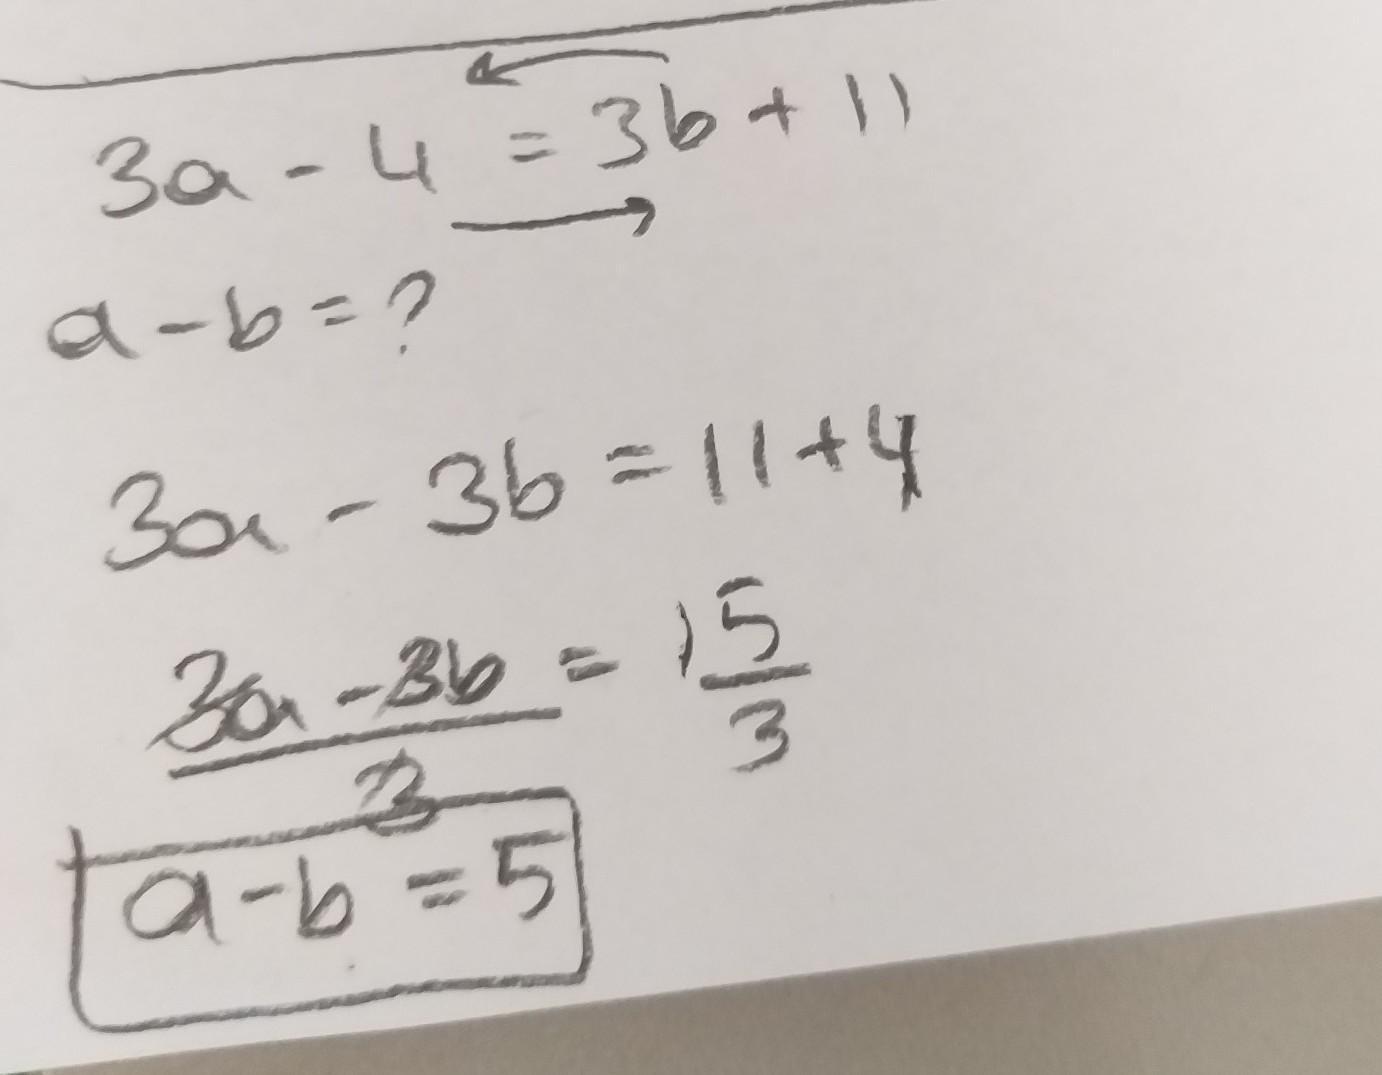 3a - 4 = 3b + 11
a - b = ?
3a - 3b = 11 + 4
3a - 3b = 15
3 3
a - b = 5